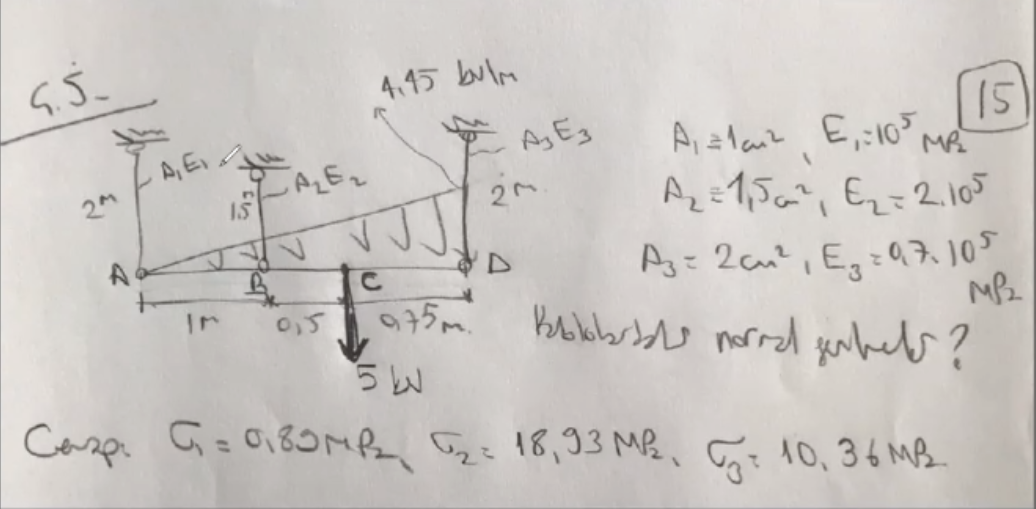 Ç.S-
4,45 kN/m
15
A₁E₁
A₂E₂
A₃E₃
2m
1,5m
2m.
A B C D
1m 0,5 0,75m.
5 kN
A₁=1cm², E₁=10⁵ MPa
A₂=1,5cm², E₂=2.10⁵
A₃=2cm², E₃=0,7.10⁵ MPa
normal ?
Cevap: σ₁=0,89MPa, σ₂=18,93 MPa, σ₃=10,36 MPa